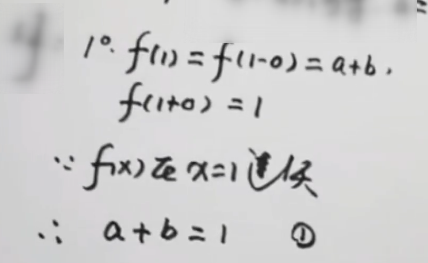 1°. f(1)=f(1-0)=a+b.
f(1+0)=1
∵ f(x)在x=1连续
∴ a+b=1 ①